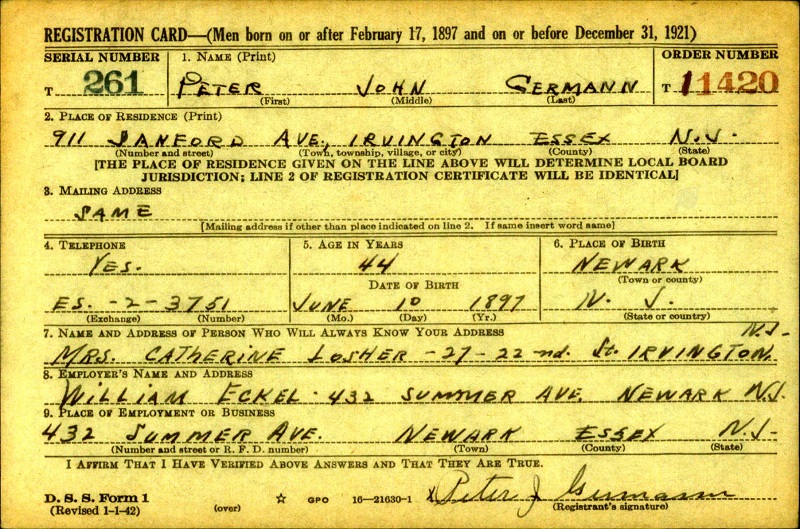 REGISTRATION CARD—(Men born on or after February 17, 1897 and on or before December 31, 1921)
SERIAL NUMBER 1. NAME (Print) ORDER NUMBER
T 261 PETER JOHN GERMANN T 11420
(First) (Middle) (Last)
2. PLACE OF RESIDENCE (Print)
911 SANFORD AVE., IRVINGTON ESSEX N.J.
(Number and street) (Town, township, village, or city) (County) (State)
[THE PLACE OF RESIDENCE GIVEN ON THE LINE ABOVE WILL DETERMINE LOCAL BOARD
JURISDICTION; LINE 2 OF REGISTRATION CERTIFICATE WILL BE IDENTICAL]
3. MAILING ADDRESS
SAME
[Mailing address if other than place indicated on line 2. If same insert word same]
4. TELEPHONE 5. AGE IN YEARS 6. PLACE OF BIRTH
YES. 44 NEWARK
DATE OF BIRTH (Town or county)
ES. -2-3751 JUNE 10 1897 N. J.
(Exchange) (Number) (Mo.) (Day) (Yr.) (State or country)
7. NAME AND ADDRESS OF PERSON WHO WILL ALWAYS KNOW YOUR ADDRESS N.J-
MRS. CATHERINE LOSHER -27-22nd. St. IRVINGTON.
8. EMPLOYER'S NAME AND ADDRESS
WILLIAM ECKEL - 432 SUMMER AVE. NEWARK NJ.
9. PLACE OF EMPLOYMENT OR BUSINESS
432 SUMMER AVE. NEWARK ESSEX N.J-
(Number and street or R. F. D. number) (Town) (County) (State)
I AFFIRM THAT I HAVE VERIFIED ABOVE ANSWERS AND THAT THEY ARE TRUE.
D. S. S. Form 1 ☆ GPO 16—21630-1 x Peter J Germann
(Revised 1-1-42) (over) (Registrant's signature)